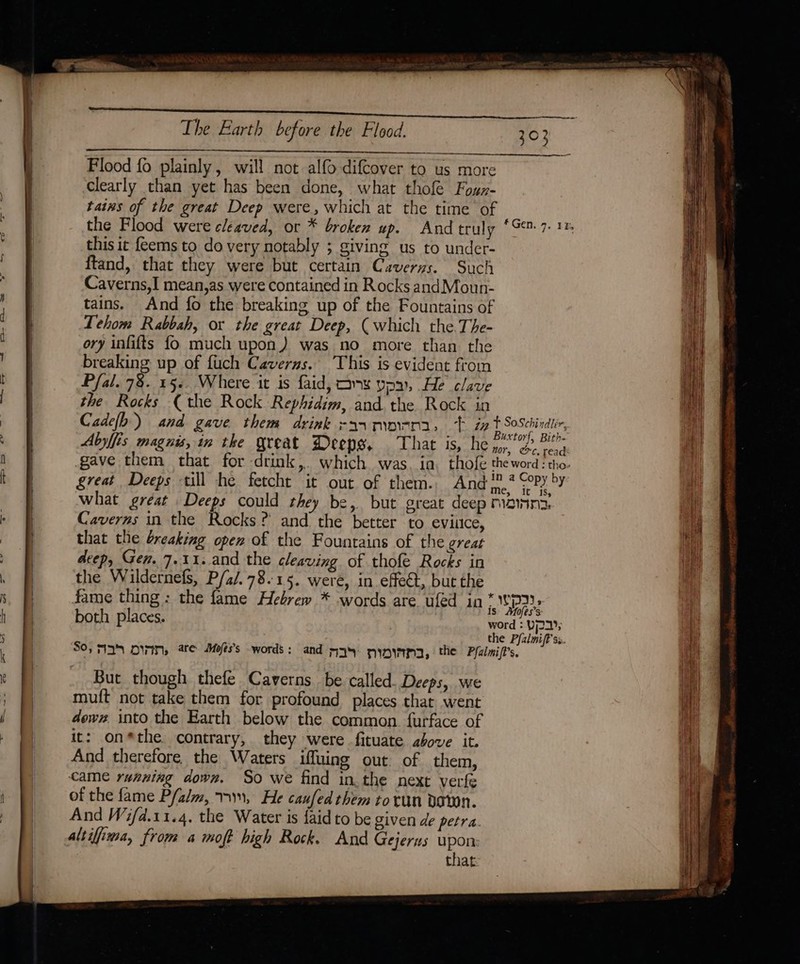 The Earth before the Flood. 303
Flood ſo plainly, will not alſo diſcover to us more
clearly than yet has been done, what thoſe Foun-
tains of the great Deep were, which at the time of
the Flood were cleaved, or * broken up. And truly
* Gen. 7. 11.
this it ſeems to do very notably ; giving us to under-
ſtand, that they were but certain Caverns. Such
Caverns, I mean, as were contained in Rocks and Moun-
tains. And ſo the breaking up of the Fountains of
Tehom Rabbah, or the great Deep, (which the The-
ory inſiſts ſo much upon) was no more than the
breaking up of ſuch Caverns. This is evident from
Pſal. 78. 15. Where it is ſaid, He clave
the Rocks (the Rock Rephidim, and the Rock in
Cadeſh) and gave them drink † in
Abyſſis magnis, in the great Deeps. That is, he
gave them that for drink, which was in thoſe
great Deeps till he fetcht it out of them. And
what great Deeps could they be, but great deep
† So Schindler, Buxtorf, Bith-
ner, &c. read
the word : tho-
in a Copy by
me, it is,
תהומות.
Caverns in the Rocks? and the better to evince,
that the breaking open of the Fountains of the great
deep, Gen. 7. 11. and the cleaving of thoſe Rocks in
the Wilderneſs, Pſal. 78. 15. were, in effect, but the
ſame thing : the ſame Hebrew * words are uſed in
both places.
* is Moſes's
word : יבקע
the Pſalmiſt's.
So, תהום רבה are Moſes's words : and the Pſalmiſt's.
But though theſe Caverns be called Deeps, we
muſt not take them for profound places that went
down into the Earth below the common ſurface of
it: on the contrary, they were ſituate above it.
And therefore the Waters iſſuing out of them,
came running down. So we find in the next verſe
of the ſame Pſalm, He cauſed them to run down.
And Wiſd. 11. 4. the Water is ſaid to be given de petra
altiſſima, from a moſt high Rock. And Gejerus upon
that